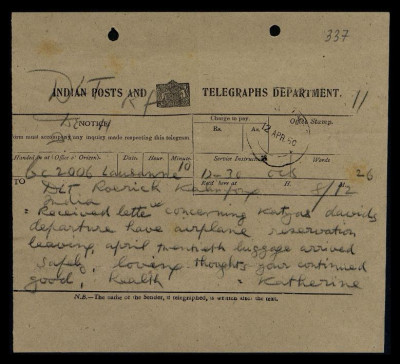 337
INDIAN POSTS AND TELEGRAPHS DEPARTMENT.
DLT
11
NOTICE
Charge to pay.
Office Stamp.
Rs. As.
12 APR. 50
form must accompany any inquiry made respecting this telegram
Handed in at (Office of Origin). Date. Hour. Minute. Service Instructions. Words
10
Gc 2006 Lausanne 12-30 OCH 26
TO
Recd here at H.
DLT Roerick Kalimpong 8/12
India
Received letter concerning Katyas davids
departure have airplane reservation
leaving april twentieth luggage arrived
safely loving thoughts your continued
good health
Katherine
N.B.—The name of the Sender, if telegraphed, is written after the text.